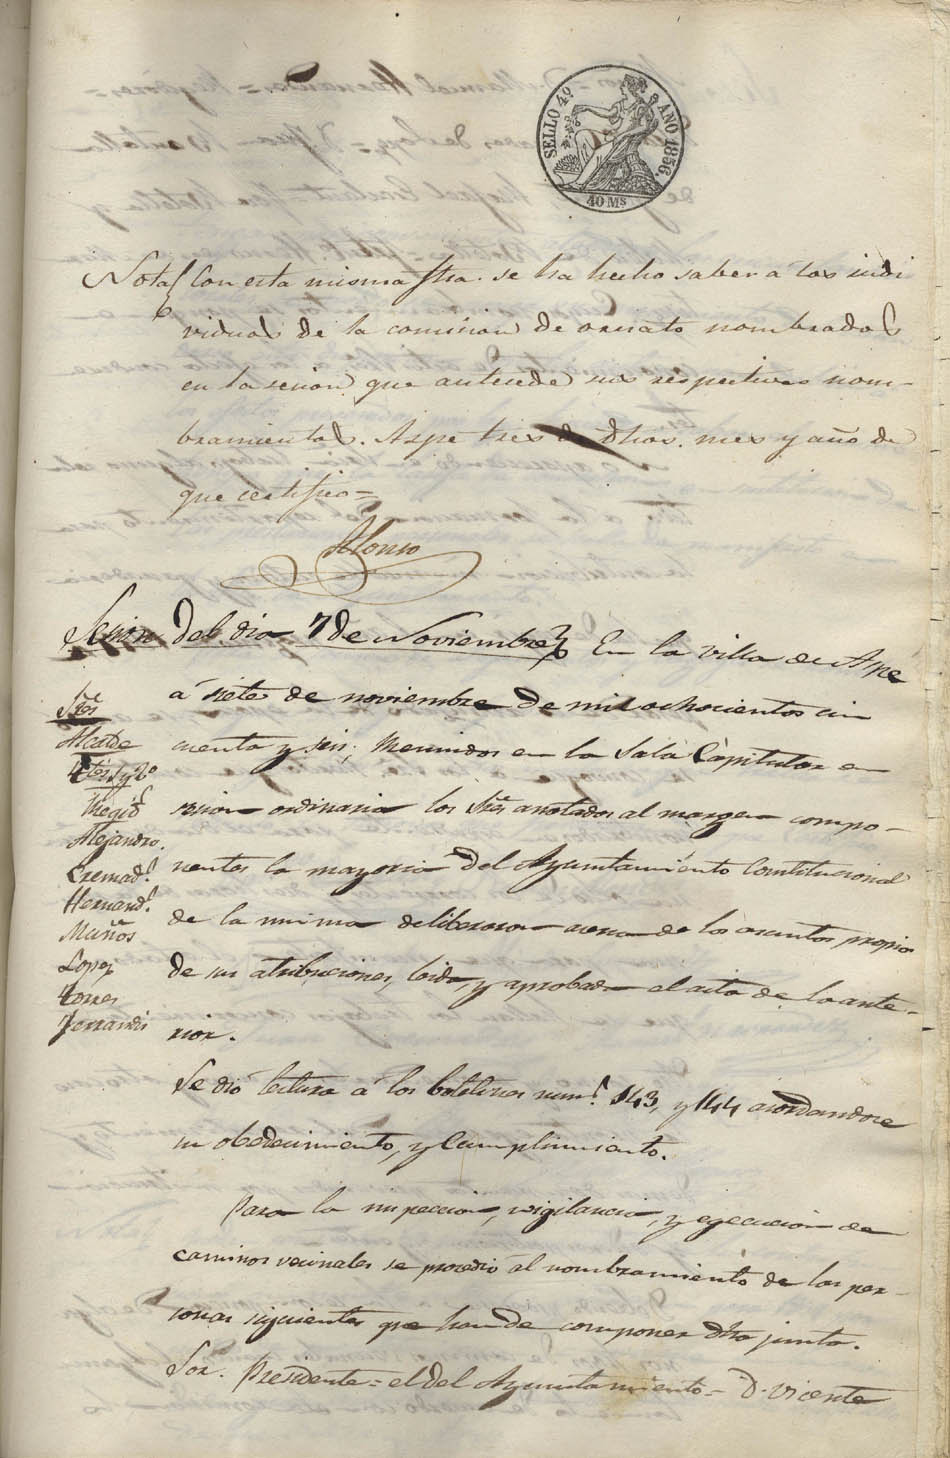 SELLO 4º AÑO 1856.
40 Ms
Nota Con esta misma fha. se ha hecho saber á los indi
viduos de la comision de ornato nombrados
en la sesion que antecede sus respectivos nom-
bramientos. Aspe tres de dhos. mes y año de
que certifico=
Alonso
Sesion del dia 7 de Noviembre En la villa de Aspe
á siete de noviembre de mil ochocientos cin
cuenta y seis; Reunidos en la Sala Capitular en
sesion ordinaria los Sres anotados al margen compo-
nentes la mayoria del Ayuntamiento Constitucional
de la misma deliberaron acerca de los asuntos propios
de sus atribuciones, leida, y aprobada el acta de la ante-
rior.
Sres
Alcalde
Ttes 1 y 2º
Regid.s
Alejandro.
Cremad.s
Hernand.s
Muños
Lopez
Torres
Ferrandis
Se dió lectura á los boletines num.s 143, y 144 acordandose
su obedecimiento, y Cumplimiento.
Para la inspeccion, vigilancia, y egecucion de
caminos vecinales se procedió al nombramiento de las per-
sonas siguientes que han de componer dha junta.
Sor. Presidente = el del Ayuntamiento = D. Vicente